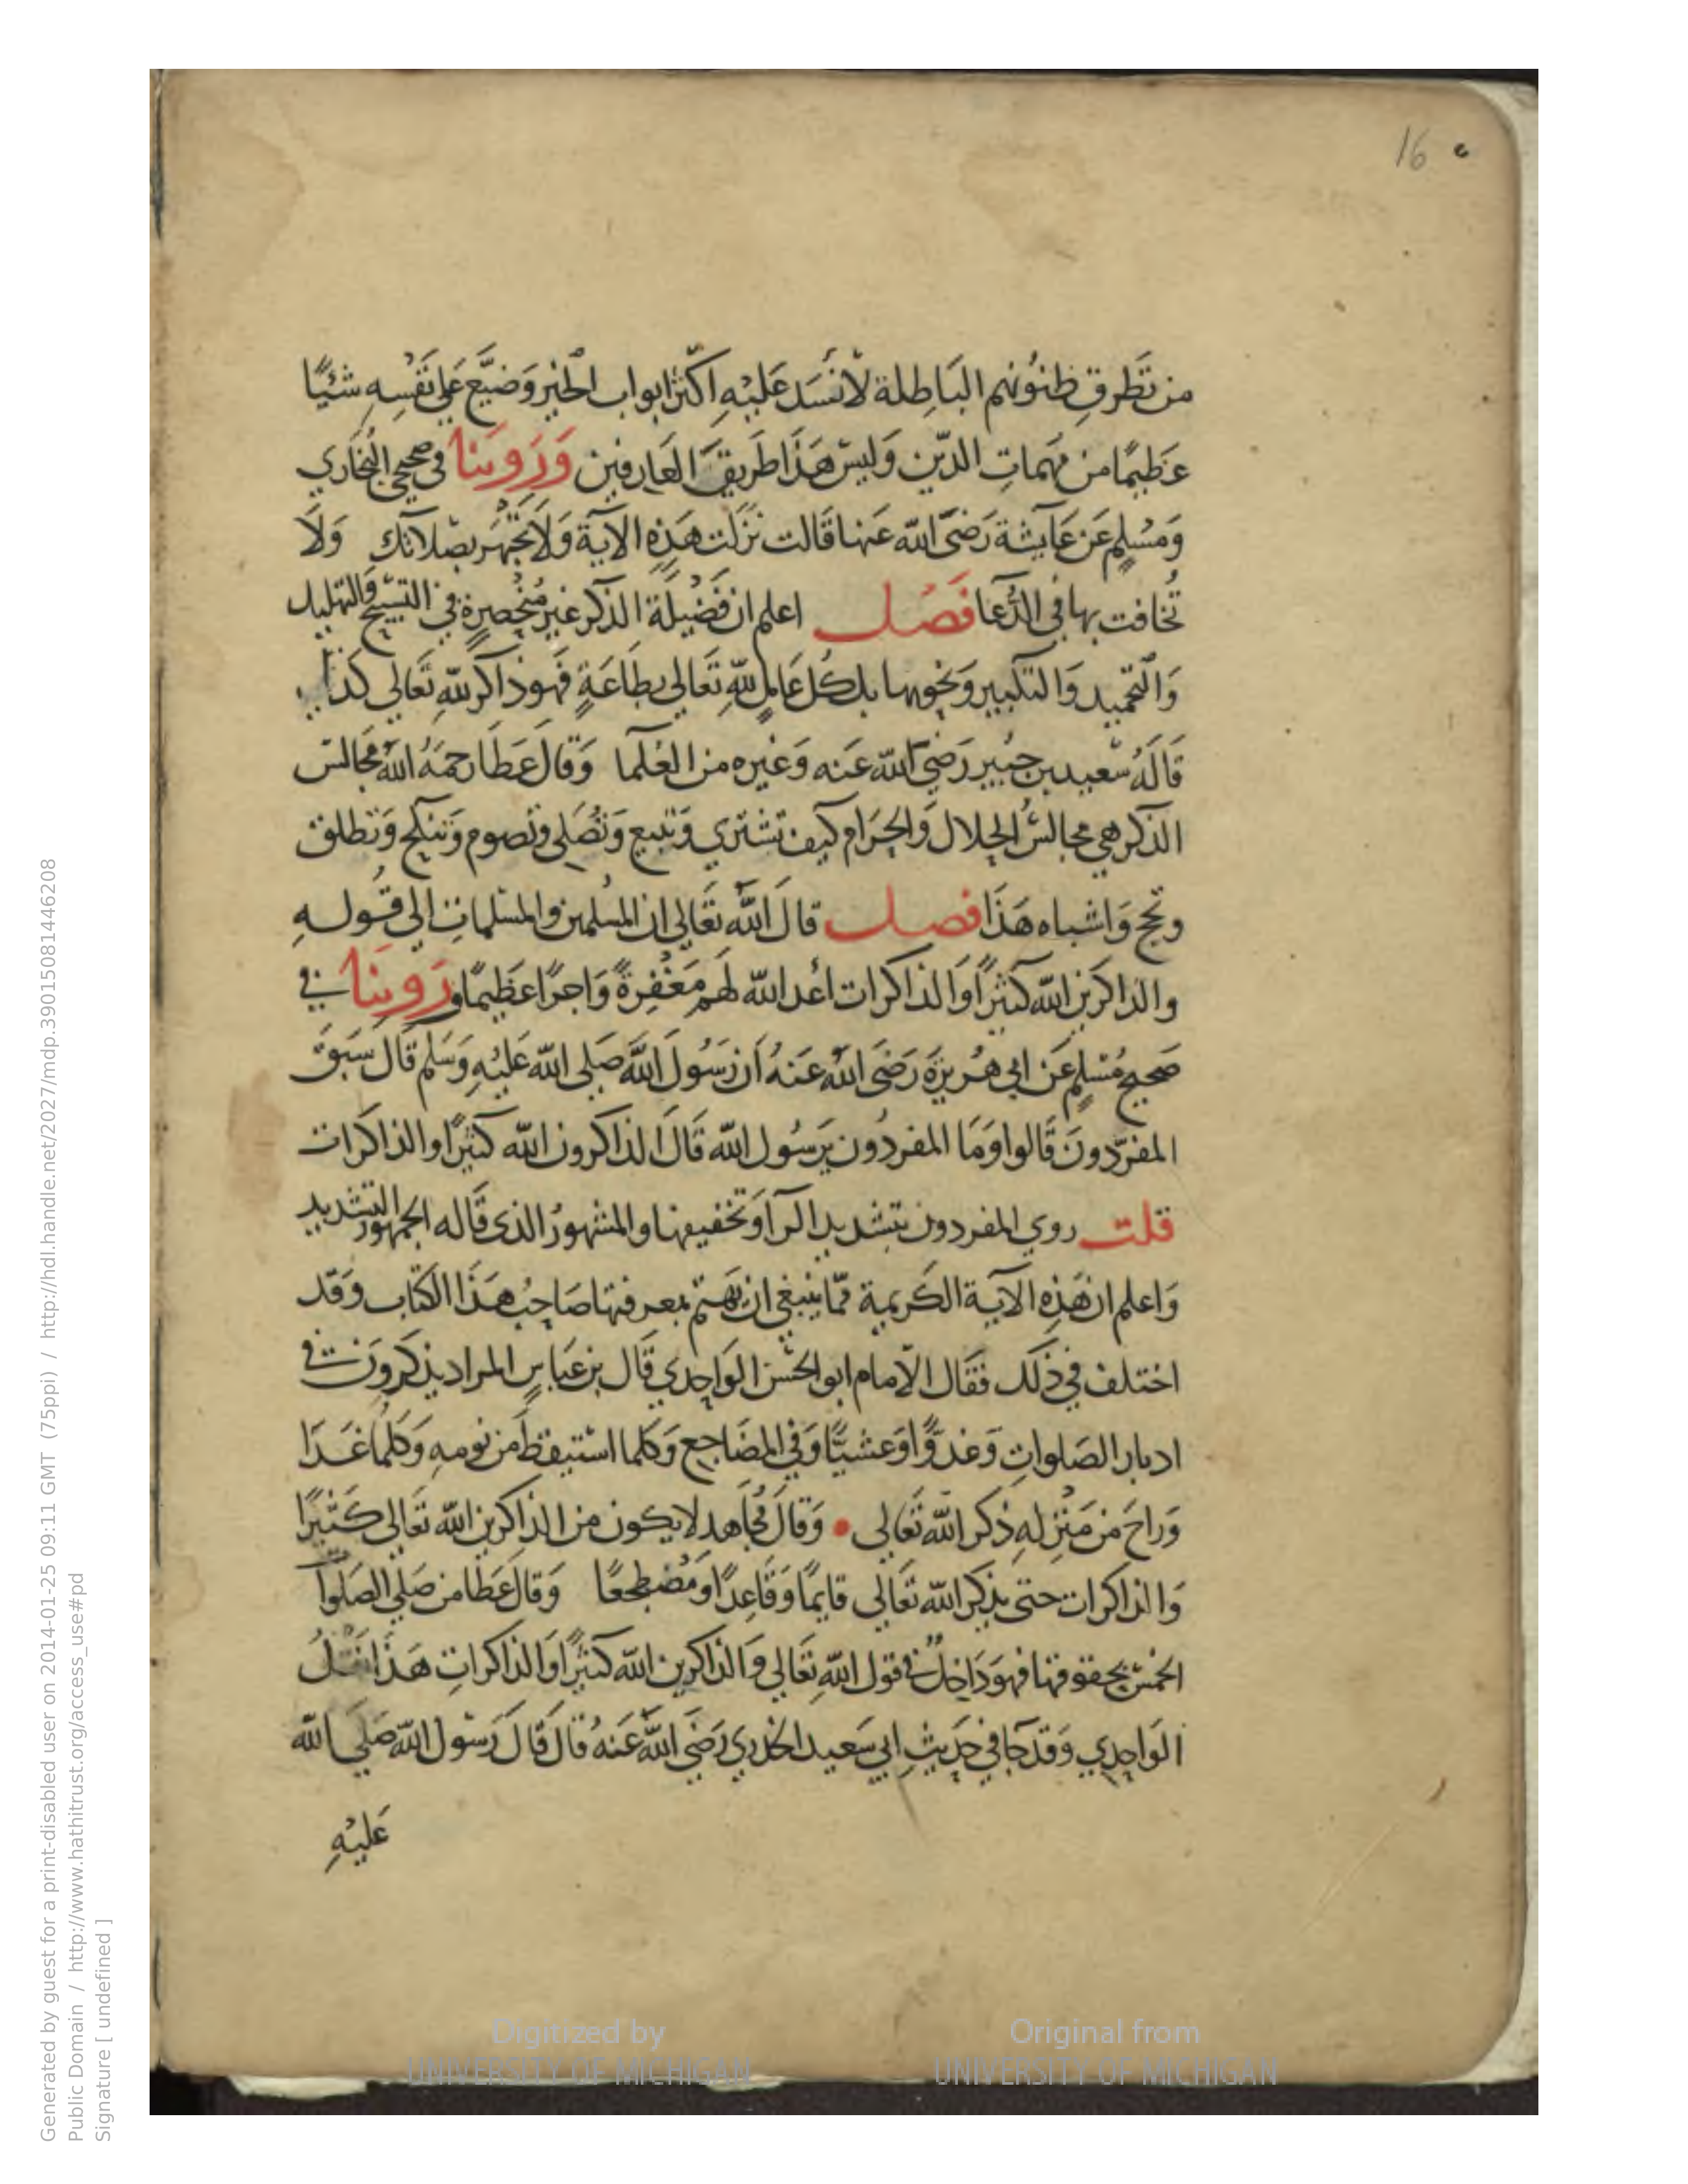 16
من تَطَرقِ ظنُونهم البَاطِلة لأنسَد عَليْهِ اكثرُ ابواب الخير وَضيَّع عَلي نَفْسِهِ شَيًْا
عَظيمًا من مهمات الدّين وَليسَ هَذَا طَريقَ العَارفين وَرَوينا في صحيحي البُخاري
وَمُسْلِمٍ عَن عَايشة رَضيَ الله عَنها قَالت نَزَلت هَذِهِ الآية وَلَا تَجْهَر بصَلاتك وَلَا
تُخافت بها في الدُّعا فَصْل اعلم ان فَضْيلَة الذكر غيرُ مُنْحَصِرةٍ في التسبيح وَالتهليل
وَالتحَميد وَالتكبير وَنحوها بل كُل عَاملٍ للهِ تَعَالي بطَاعَةٍ فَهوَ ذاكر للهِ تَعَالي كَذا
قَالَهُ سَعيد بن جُبَير رَضيَ الله عَنه وَغيره من العُلَما وَقالَ عَطَا رحمَهُ اللهُ مَجَالس
الذكر هي مجالسُ الحلال وَالحرَام كيف تشتري وَتبيع وَتُصَلي وتصوم وَتنكح وَتطلق
وتحج وَاشباه هَذَا فصل قالَ اللهُ تعَالي ان المُسلمين والمسلمات الي قَولهِ
والذاكرين الله كثيرًا وَالذاكرات أعد الله لَهم مَغْفِرةً وَاجرًا عظيمًا ورَوينَا في
صحيح مُسْلِمٍ عَن ابي هُريرَة رَضَيَ اللهُ عَنهُ أن رَسُولَ اللهَ صَلي الله عَليْهِ وَسَلم قَال سَبَقَ
المفرّدونَ قَالوا وَمَا المفردُون يَرسُول الله قَالَ الذاكرون الله كثيرًا والذاكرات
قلت روي المفردون بتشديد الرآ وَتخفيفها والمشهورُ الذي قَاله الجمهور التشديد
وَاعلم ان هَذِهِ الآية الكَريمة ممّا ينبغي ان يَهتم بمعرفتها صَاحبُ هَذَا الكتَاب وَقد
اختلف في ذلك فَقَال الأمام ابو الحسَن الوَاحدي قَال بن عَباسٍ المراد يذكرونَ في
ادبار الصَلواتِ وَغدُوًّا وَعشيًّا وَفي المضَاجع وَكلما استيقظَ من نومهِ وَكُلما غَدَا
وَراحَ من مَنْزِلهِ ذكر الله تَعَالي وَقالَ مُجَاهد لا يكون من الذاكرين الله تَعَالي كَثيرًا
وَالذاكرات حتي يذكر الله تعَالي قايمًا وَقَاعِدًا وَمُضْطجعًا وَقالَ عَطَا من صَلي الصَلَوآ
الخمسَ بحقوقها فهوَ دَاخلٌ في قول اللهِ تَعَالي وَالذاكرين الله كثيرًا وَالذاكراتِ هَذا نَقْلُ
الوَاحِدِي وَقد جَا في حَدَيثِ ابي سَعيد الخدري رَضَيَ اللهُ عَنهُ قالَ قَالَ رَسُول الله صَلَي الله
عَليْهِ
Generated by guest for a print-disabled user on 2014-01-25 09:11 GMT (75ppi) / http://hdl.handle.net/2027/mdp.39015081446208
Public Domain / http://www.hathitrust.org/access_use#pd
Signature [ undefined ]
Digitized by
UNIVERSITY OF MICHIGAN
Original from
UNIVERSITY OF MICHIGAN